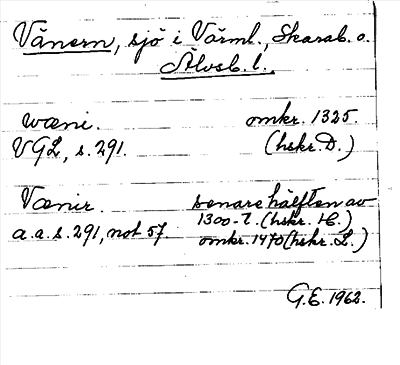 Vänern, sjö i Värml., Skarab. o.
Älvsb. l.
wæni. omkr. 1325.
VGL, s. 291. (hskr. D.)
Vænir. senare hälften av
1300-t. (hskr. H.)
a.a.s. 291, not 57. omkr. 1470 (hskr. L.)
G.E. 1962.